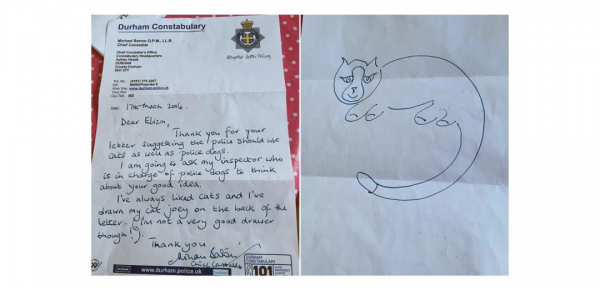 Durham Constabulary
Michael Barton Q.P.M., LL.B.
Chief Constable
Chief Constable's Office
Constabulary Headquarters
Aykley Heads
DURHAM
County Durham
Altogether better Policing
Date 17th March 2016
Dear Eliza,
Thank you for your
letter suggesting the police should use
cats as well as police dogs.
I am going to ask my inspector who
is in charge of police dogs to think
about your good idea.
I've always liked cats and I've
drawn my cat Joey on the back of the
letter. (I'm not a very good drawer
though!).
Thank you
Chief Constable
www.durham.police.uk
DURHAM
CONSTABULARY
101